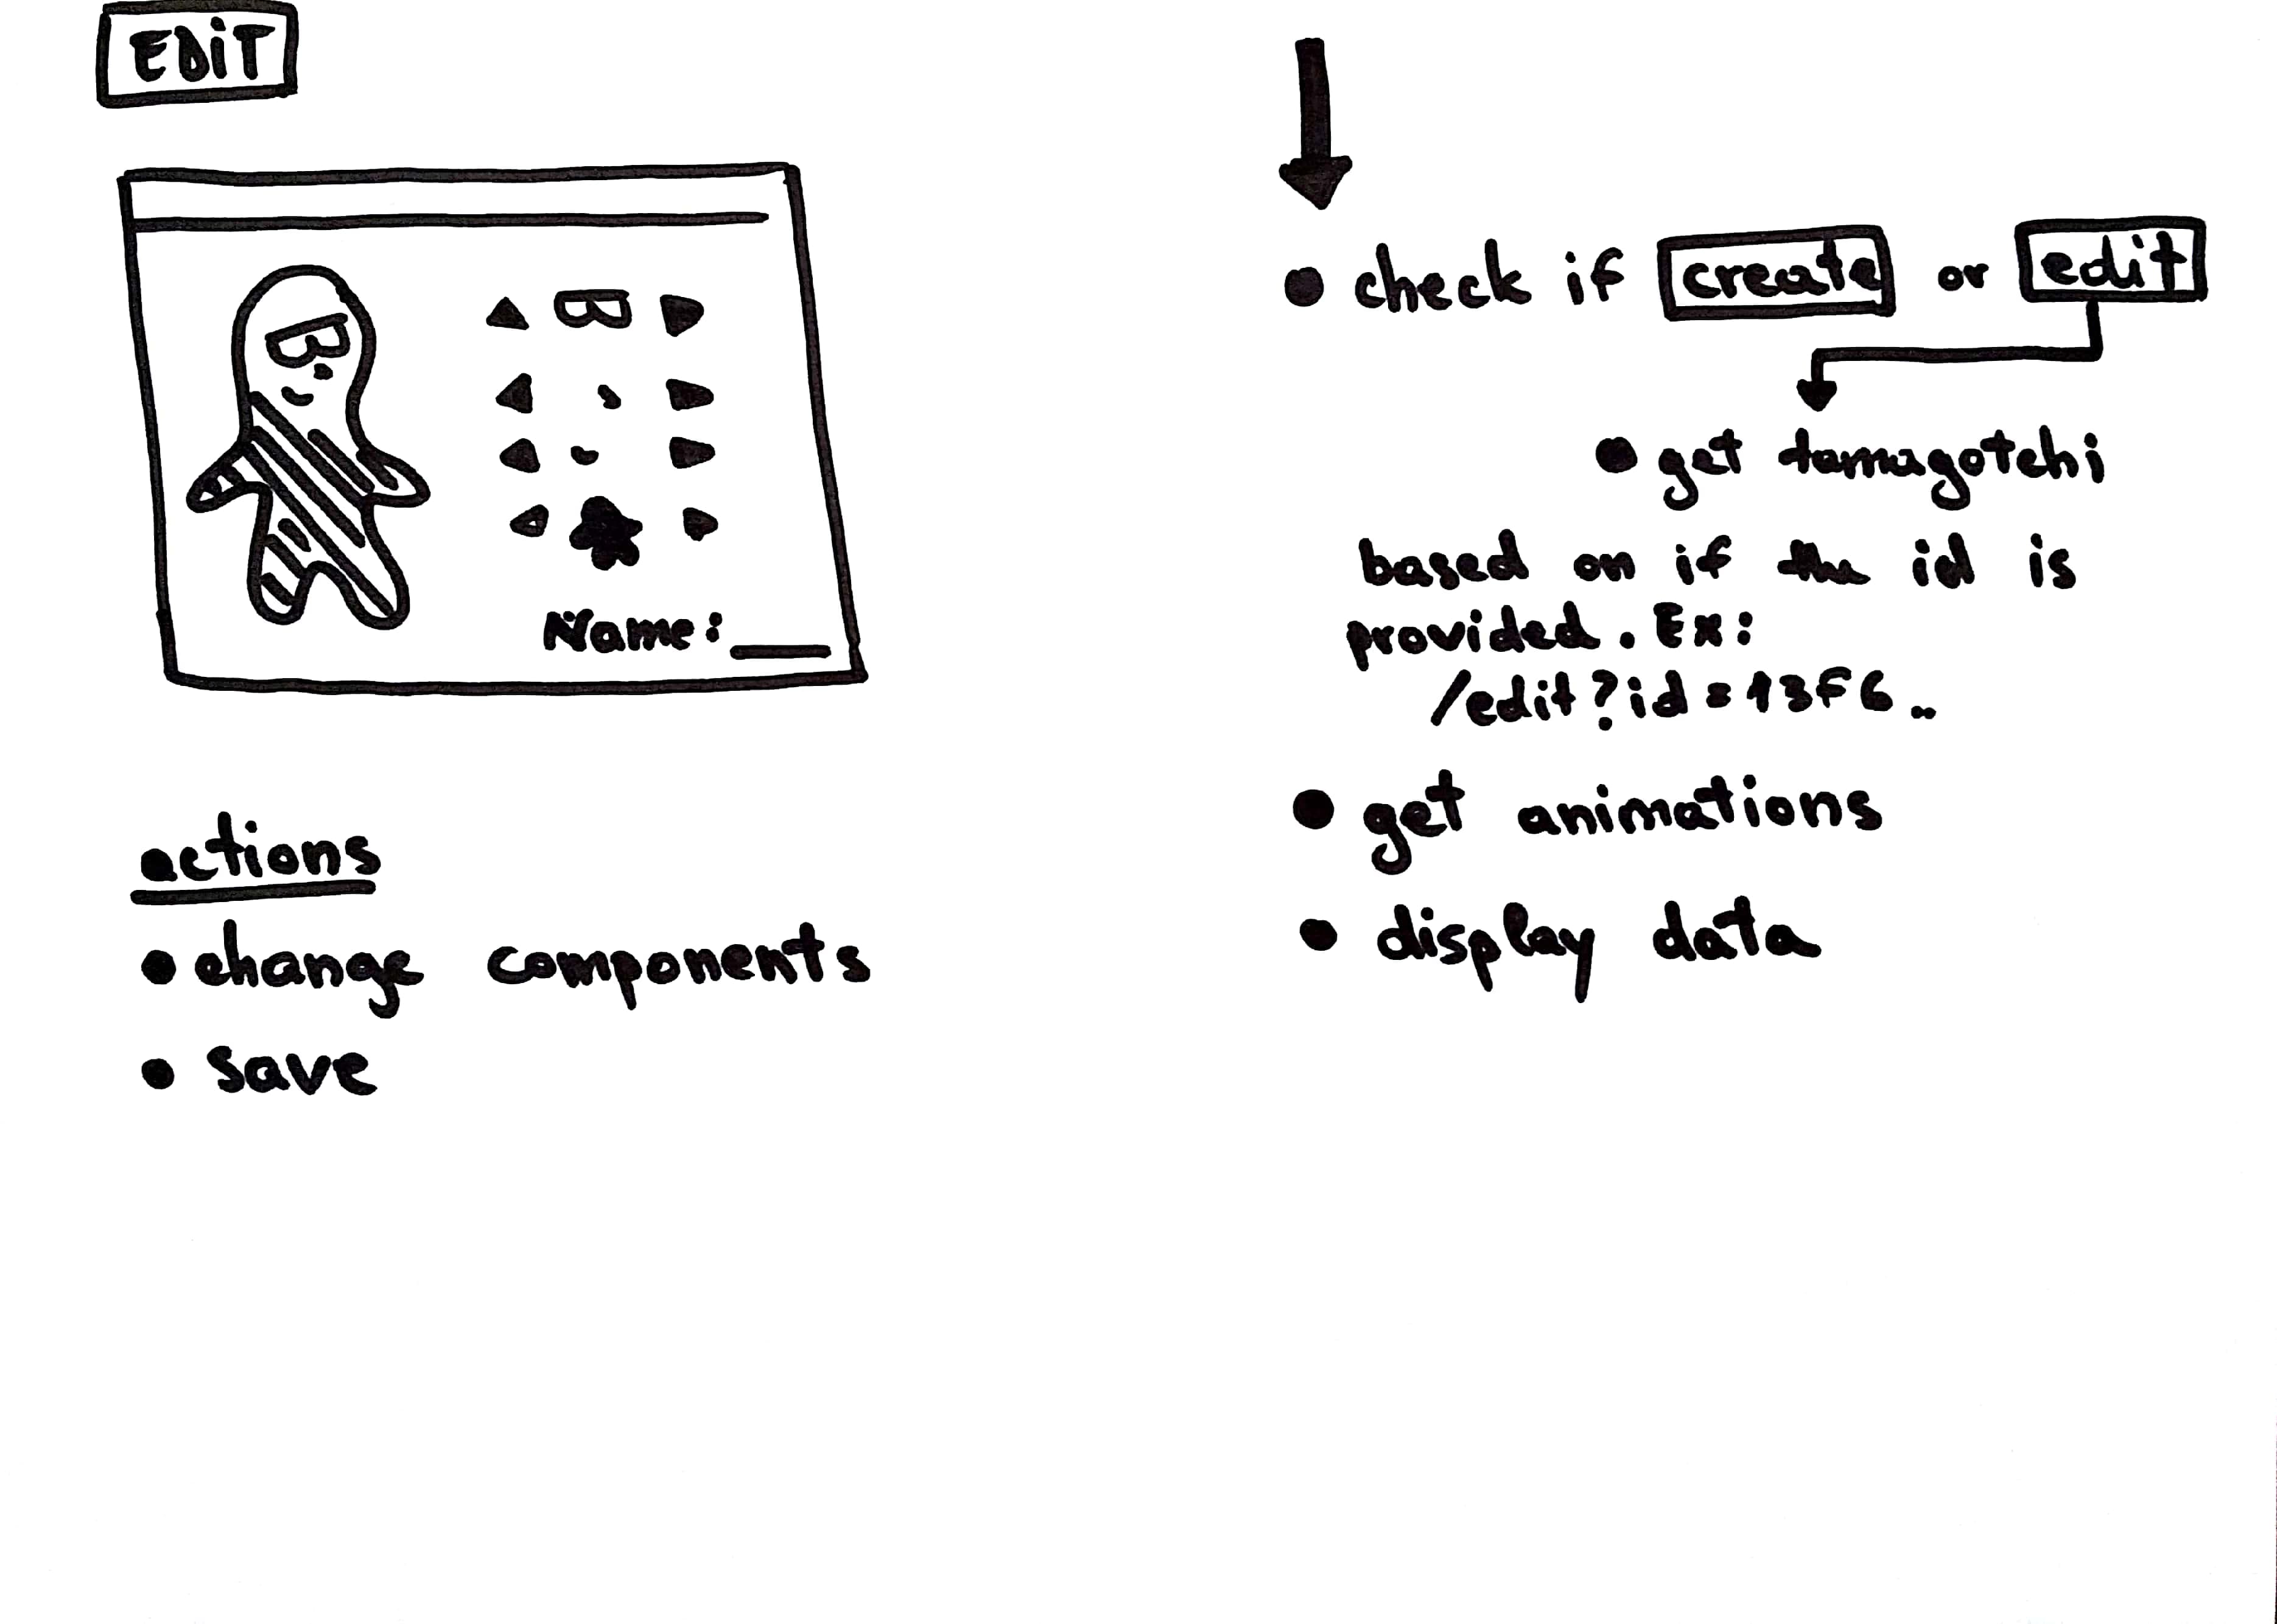 EDiT
Name:
actions
• change components
• save
• check if create or edit
• get tamagotchi
based on if the id is
provided. Ex:
/edit?id=13F6..
• get animations
• display data